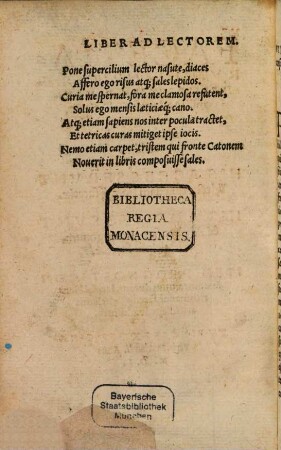 LIBER AD LECTOREM.
Pone supercilium lector nasute, diaces
Affero ego risus atq; sales lepidos.
Curia me spernat, fora me clamosa refutent,
Solus ego mensis læticiæq; cano.
Atq; etiam sapiens nos inter pocula tractet,
Et tetricas curas mitiget ipse iocis.
Nemo etiam carpet, tristem qui fronte Catonem
Noverit in libris composuisse sales.
BIBLIOTHECA
REGIA
MONACENSIS.
Bayerische
Staatsbibliothek
München